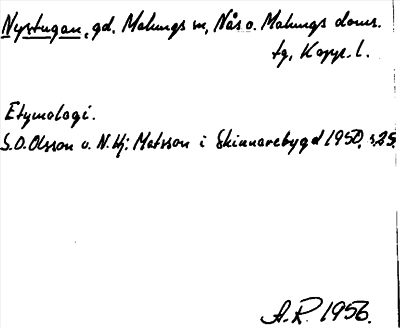 Nystugan, gd. Malungs sn, Nås o. Malungs doms.
tg, Kopp. l.
Etymologi.
S.O. Olsson o. N. Hj. Matsson i Skinnarebygd 1950, s. 25.
A.R. 1956.